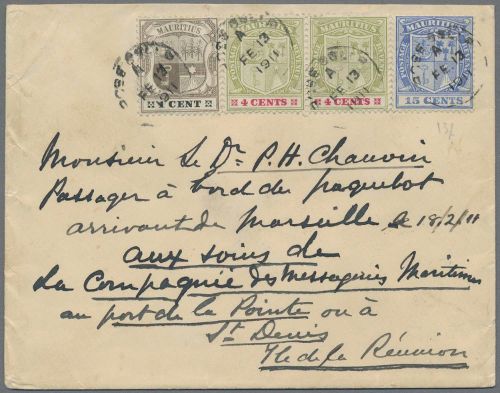 MAURITIUS MAURITIUS MAURITIUS MAURITIUS
POSTAGE REVENUE POSTAGE REVENUE
A A A A
FE 13 FE 13 FE 13 FE 13
1911 1911
1 CENT 4 CENTS 4 CENTS 15 CENTS
Monsieur Le Dr P. H. Chauvin
Passager à bord du paquebot
arrivant de Marseille le 18/2/11
aux soins de
La Compagnie des Messageries Maritimes
au port de la Pointe ou à
St Denis
Ile de la Réunion